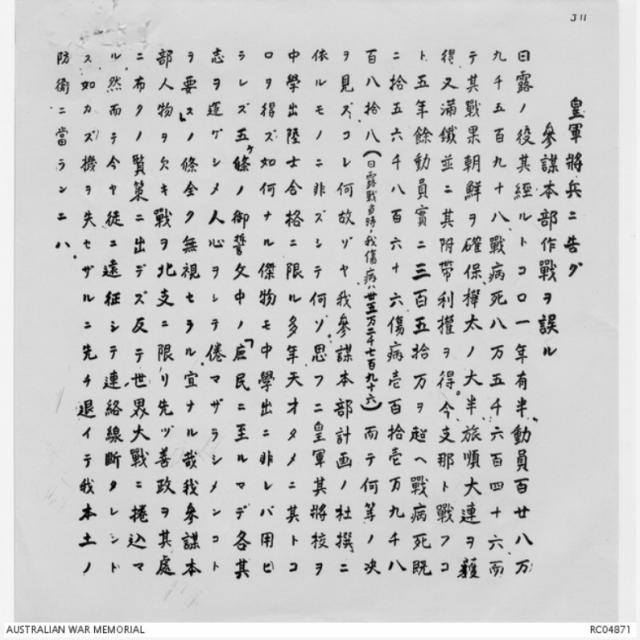 J11
皇軍將兵ニ告グ
參謀本部作戰ヲ誤ル
日露ノ役其經ルトコロ一年有半、動員百廿八万
九千五百九十八、戰病死八万五千六百四十六而
テ其戰果朝鮮ヲ確保樺太ノ大半旅順大連ヲ獲
得又滿鐵並ニ其附帶利權ヲ得。今支那ト戰フコ
ト五年餘動員實ニ三百五拾万ヲ超ヘ戰病死既
ニ拾五六千八百六十六傷病壱百拾壱万九千八
百八拾八(日露戰當時ノ我傷病ハ廿五万二千七百九十六)而テ何等ノ決
ヲ見ズ、コレ何故ゾヤ我參謀本部計画ノ杜撰ニ
依ルモノニ非ズシテ何ゾ思フニ皇軍其將校ヲ
中學出陸士合格ニ限ル多年天オタメニ其トコ
ロヲ得ズ如何ナル傑物モ中學出ニ非レバ用ヒ
ラレズ五ヶ條ノ御誓文中ノ「庶民ニ至ルマデ各其
志ヲ遂ゲシメ人心ヲシテ倦マザラシメンコト
ヲ要ス」ノ條全ク無視セラル宜ナル哉我參謀本
部人物ヲ欠キ戰ヲ北支ニ限リ先ヅ善政ヲ其處
ニ布クノ賢策ニ出デズ反テ世界大戰ニ捲込マ
ル然而テ今ヤ徒ニ遠征シテ連絡線斷タレント
ス如カズ機ヲ失セザルニ先チ退イテ我本土ノ
防衛ニ當ランニハ。
AUSTRALIAN WAR MEMORIAL
RC04871